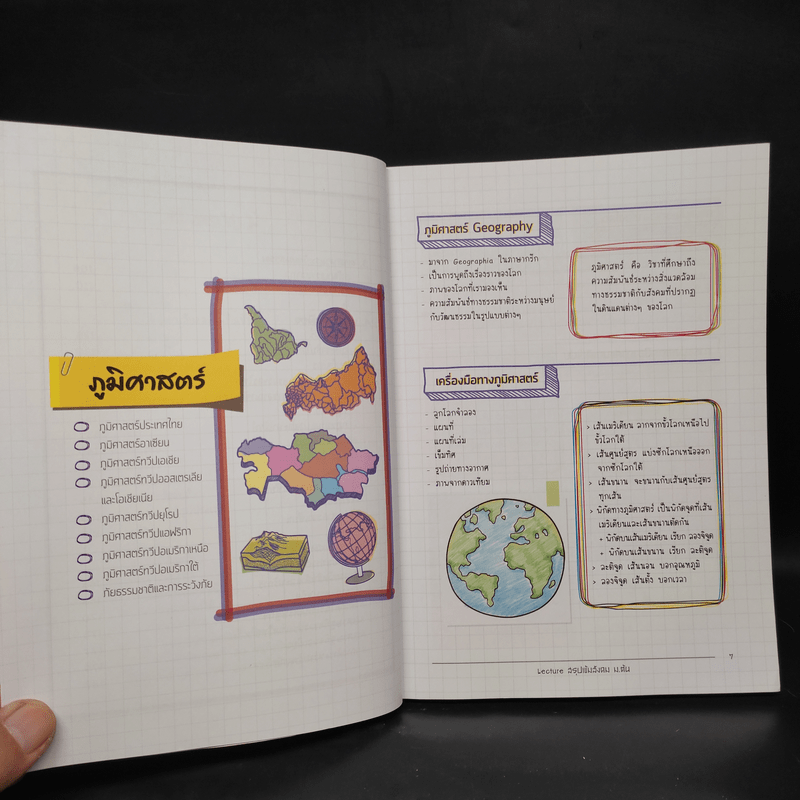 ภูมิศาสตร์
ภูมิศาสตร์ประเทศไทย
ภูมิศาสตร์อาเซียน
ภูมิศาสตร์ทวีปเอเชีย
ภูมิศาสตร์ทวีปออสเตรเลีย
และโอเชียเนีย
ภูมิศาสตร์ทวีปยุโรป
ภูมิศาสตร์ทวีปแอฟริกา
ภูมิศาสตร์ทวีปอเมริกาเหนือ
ภูมิศาสตร์ทวีปอเมริกาใต้
ภัยธรรมชาติและการระวังภัย
ภูมิศาสตร์ Geography
- มาจาก Geographia ในภาษากรีก
- เป็นการพูดถึงเรื่องราวของโลก
- ภาพของโลกที่เรามองเห็น
- ความสัมพันธ์ทางธรรมชาติระหว่างมนุษย์
กับวัฒนธรรมในรูปแบบต่างๆ
ภูมิศาสตร์ คือ วิชาที่ศึกษาถึง
ความสัมพันธ์ระหว่างสิ่งแวดล้อม
ทางธรรมชาติกับสังคมที่ปรากฏ
ในดินแดนต่างๆ ของโลก
เครื่องมือทางภูมิศาสตร์
- ลูกโลกจำลอง
- แผนที่
- แผนที่เล่ม
- เข็มทิศ
- รูปถ่ายทางอากาศ
- ภาพจากดาวเทียม
> เส้นเมริเดียน ลากจากขั้วโลกเหนือไป
ขั้วโลกใต้
> เส้นศูนย์สูตร แบ่งซีกโลกเหนือออก
จากซีกโลกใต้
> เส้นขนาน จะขนานกับเส้นศูนย์สูตร
ทุกเส้น
> พิกัดทางภูมิศาสตร์ เป็นพิกัดจุดที่เส้น
เมริเดียนและเส้นขนานตัดกัน
• พิกัดบนเส้นเมริเดียน เรียก ลองจิจูด
• พิกัดบนเส้นขนาน เรียก ละติจูด
> ละติจูด เส้นนอน บอกอุณหภูมิ
> ลองจิจูด เส้นตั้ง บอกเวลา
Lecture สรุปเข้มสังคม ม.ต้น
7